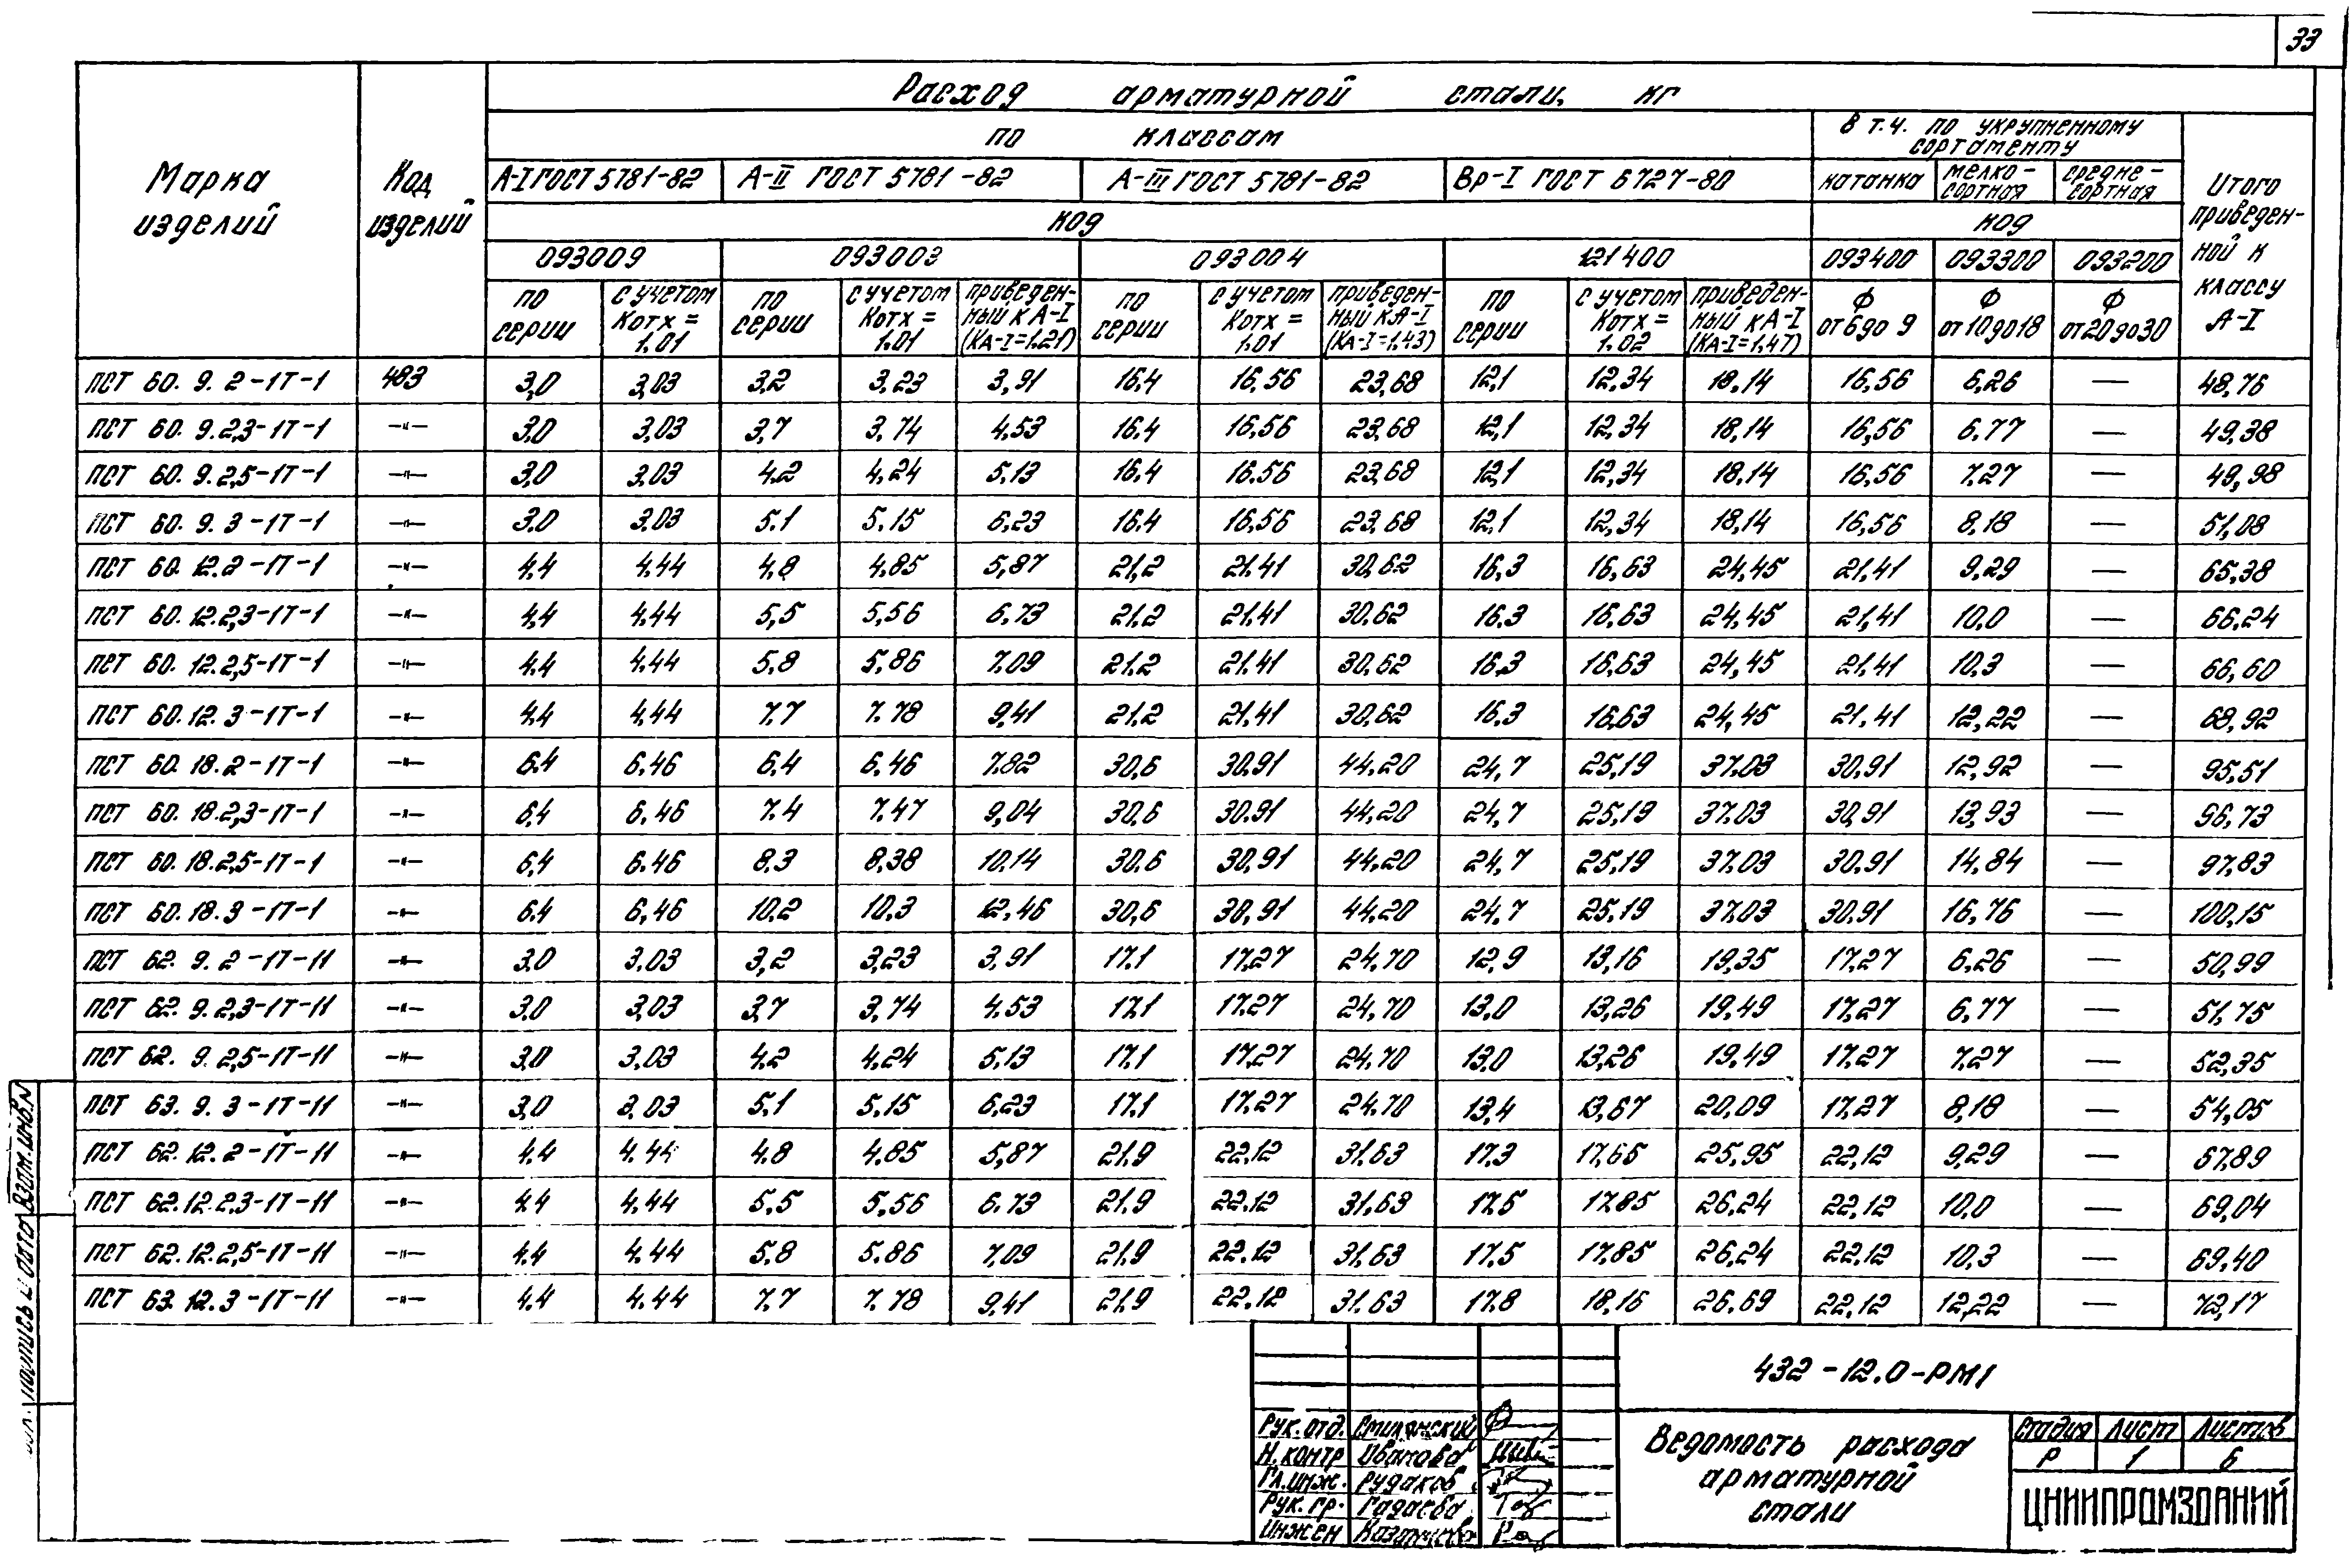 33
Расход арматурной стали, кг
по классам
в т.ч. по укрупненному сортаменту
Марка изделий
Код изделий
А-I ГОСТ 5781-82 А-II ГОСТ 5781-82 А-III ГОСТ 5781-82 Вр-I ГОСТ 6727-80 катанка мелко-сортная средне-сортная
Итого приведен-ной к классу А-I
код код
093009 093003 093004 121400 093400 093300 093200
по серии с учетом Котх = 1.01 по серии с учетом Котх = 1.01 приведен-ный к А-I (КА-I=1.21) по серии с учетом Котх = 1.01 приведен-ный к А-I (КА-I=1,43) по серии с учетом Котх = 1.02 приведен-ный к А-I (КА-I=1,47) Ф от 6 до 9 Ф от 10 до 18 Ф от 20 до 30
ПСТ 60. 9. 2-1Т-1 483 3,0 3,03 3,2 3,23 3,91 16,4 16,56 23,68 12,1 12,34 18,14 16,56 6,26 — 48,76
ПСТ 60. 9.2,3-1Т-1 -"- 3,0 3,03 3,7 3,74 4,53 16,4 16,56 23,68 12,1 12,34 18,14 16,56 6,77 — 49,38
ПСТ 60. 9.2,5-1Т-1 -"- 3,0 3,03 4,2 4,24 5,13 16,4 16,56 23,68 12,1 12,34 18,14 16,56 7,27 — 49,98
ПСТ 60. 9. 3-1Т-1 -"- 3,0 3,03 5,1 5,15 6,23 16,4 16,56 23,68 12,1 12,34 18,14 16,56 8,18 — 51,08
ПСТ 60. 12.2-1Т-1 -"- 4,4 4,44 4,8 4,85 5,87 21,2 21,41 30,62 16,3 16,63 24,45 21,41 9,29 — 65,38
ПСТ 60.12.2,3-1Т-1 -"- 4,4 4,44 5,5 5,56 6,73 21,2 21,41 30,62 16,3 16,63 24,45 21,41 10,0 — 66,24
ПСТ 60.12.2,5-1Т-1 -"- 4,4 4,44 5,8 5,86 7,09 21,2 21,41 30,62 16,3 16,63 24,45 21,41 10,3 — 66,60
ПСТ 60.12.3-1Т-1 -"- 4,4 4,44 7,7 7,78 9,41 21,2 21,41 30,62 16,3 16,63 24,45 21,41 12,22 — 68,92
ПСТ 60.18.2-1Т-1 -"- 6,4 6,46 6,4 6,46 7,82 30,6 30,91 44,20 24,7 25,19 37,03 30,91 12,92 — 95,51
ПСТ 60.18.2,3-1Т-1 -"- 6,4 6,46 7,4 7,47 9,04 30,6 30,91 44,20 24,7 25,19 37,03 30,91 13,93 — 96,73
ПСТ 60.18.2,5-1Т-1 -"- 6,4 6,46 8,3 8,38 10,14 30,6 30,91 44,20 24,7 25,19 37,03 30,91 14,84 — 97,83
ПСТ 60.18.3-1Т-1 -"- 6,4 6,46 10,2 10,3 12,46 30,6 30,91 44,20 24,7 25,19 37,03 30,91 16,76 — 100,15
ПСТ 62. 9.2-1Т-11 -"- 3,0 3,03 3,2 3,23 3,91 17,1 17,27 24,70 12,9 13,16 19,35 17,27 6,26 — 50,99
ПСТ 62. 9.2,3-1Т-11 -"- 3,0 3,03 3,7 3,74 4,53 17,1 17,27 24,70 13,0 13,26 19,49 17,27 6,77 — 51,75
ПСТ 62. 9.2,5-1Т-11 -"- 3,0 3,03 4,2 4,24 5,13 17,1 17,27 24,70 13,0 13,26 19,49 17,27 7,27 — 52,35
ПСТ 63. 9. 3-1Т-11 -"- 3,0 3,03 5,1 5,15 6,23 17,1 17,27 24,70 13,4 13,67 20,09 17,27 8,18 — 54,05
ПСТ 62.12.2-1Т-11 -"- 4,4 4,44 4,8 4,85 5,87 21,9 22,12 31,63 17,3 17,65 25,95 22,12 9,29 — 67,89
ПСТ 62.12.2,3-1Т-11 -"- 4,4 4,44 5,5 5,56 6,73 21,9 22,12 31,63 17,5 17,85 26,24 22,12 10,0 — 69,04
ПСТ 62.12.2,5-1Т-11 -"- 4,4 4,44 5,8 5,86 7,09 21,9 22,12 31,63 17,5 17,85 26,24 22,12 10,3 — 69,40
ПСТ 63.12.3-1Т-11 -"- 4,4 4,44 7,7 7,78 9,41 21,9 22,12 31,63 17,8 18,16 26,69 22,12 12,22 — 72,17
Взам.инв.N
Подпись и дата
432-12.0-РМ1
Рук. отд. Смилянский
Н. контр Иванова
Гл.инж. Рудаков
Рук. гр. Гадаева
Инжен
Ведомость расхода арматурной стали
Стадия Лист Листов
Р 1 6
ЦНИИПРОМЗДАНИЙ